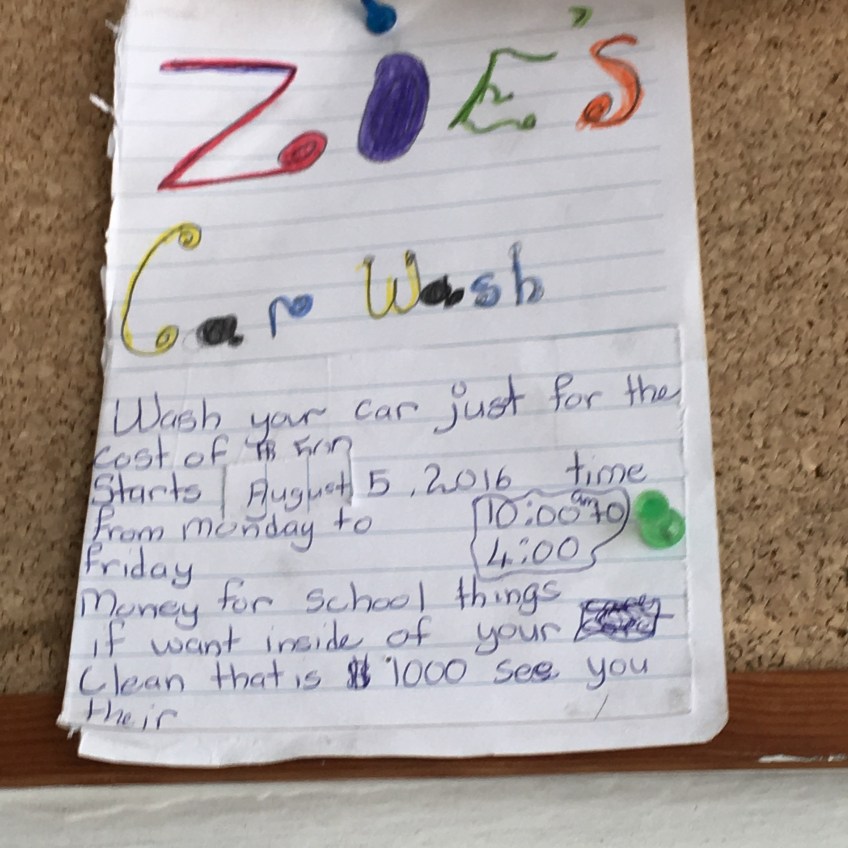 ZOE'S
Car Wash
Wash your car just for the
cost of
Starts August 5, 2016 time
from monday to 10:00am to
friday 4:00
Money for school things
if want inside of your
Clean that is $1000 see you
their